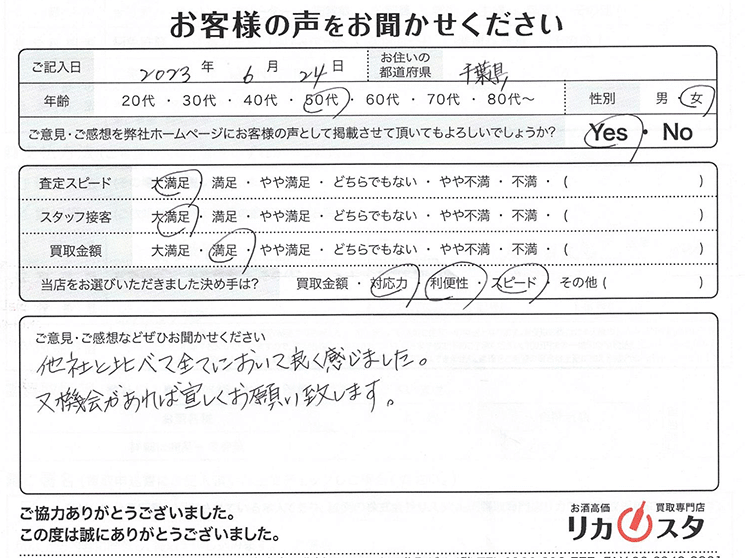 お客様の声をお聞かせください
ご記入日 2023 年 6 月 24 日 お住いの都道府県 千葉県
年齢 20代 ・ 30代 ・ 40代 ・ 50代 ・ 60代 ・ 70代 ・ 80代〜 性別 男 ・ 女
ご意見・ご感想を弊社ホームページにお客様の声として掲載させて頂いてもよろしいでしょうか? Yes ・ No
査定スピード 大満足 ・ 満足 ・ やや満足 ・ どちらでもない ・ やや不満 ・ 不満 ・ ( )
スタッフ接客 大満足 ・ 満足 ・ やや満足 ・ どちらでもない ・ やや不満 ・ 不満 ・ ( )
買取金額 大満足 ・ 満足 ・ やや満足 ・ どちらでもない ・ やや不満 ・ 不満 ・ ( )
当店をお選びいただきました決め手は? 買取金額 ・ 対応力 ・ 利便性 ・ スピード ・ その他 ( )
ご意見・ご感想などぜひお聞かせください
他社と比べて全てにおいて良く感じました。
又機会があれば宜しくお願い致します。
ご協力ありがとうございました。
この度は誠にありがとうございました。
お酒高価 買取専門店
リカスタ